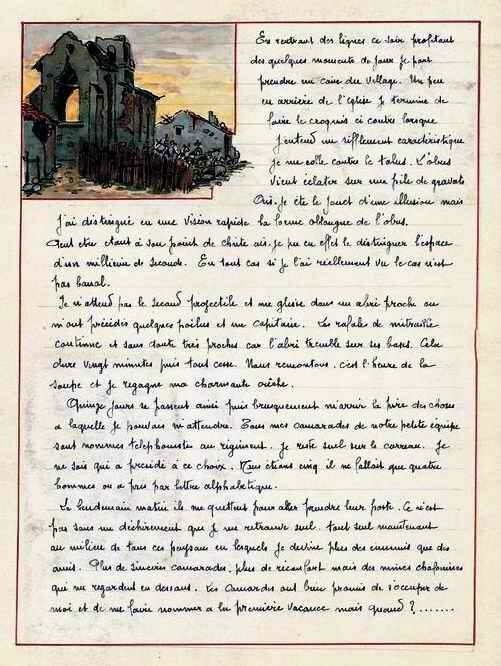 En rentrant des lignes ce soir profitant
des quelques moments de jour je pars
prendre un coin du village. Un peu
en arrière de l'église je termine de
faire le croquis ci contre lorsque
j'entend un sifflement caractéristique
je me colle contre le talus. L'obus
vient éclater sur une pile de gravats
Oui. Je été le jouet d'une illusion mais
j'ai distingué en une vision rapide la forme oblongue de l'obus.
Peut etre étant à son point de chûte ais-je pu en effet le distinguer l'espace
d'un millième de seconde. En tout cas si je l'ai réellement vu le cas n'est
pas banal.
Je n'attend pas le second projectile et me glisse dans un abri proche ou
m'ont précédés quelques poilus et un capitaine. Les rafales de mitraille
continue et sans doute très proches car l'abri tremble sur ses bases. Cela
dure vingt minutes puis tout cesse. Nous remontons, c'est l'heure de la
soupe et je regagne ma charmante crèche.
Quinze jours se passent ainsi puis brusquement m'arrive la pire des choses
a laquelle je pouvais m'attendre. Tous mes camarades de notre petite équipe
sont nommés telephonistes au régiment. Je reste seul sur le carreau. Je
ne sais qui a présidé à ce choix. Nous étions cinq, il ne fallait que quatre
hommes on a pris par lettre alphabetique.
Le lendemain matin ils me quittent pour aller prendre leur poste. Ce n'est
pas sans un déchirement que je me retrouve seul, tout seul maintenant
au milieu de tous ces paysans en lesquels je devine plus des ennemis que des
amis. Plus de sincères camarades, plus de réconfort mais des mines chafouines
qui me regardent en dessous. Les camarades ont bien promis de s'occuper de
moi et de me faire nommer a la première vacance mais quand ? ........